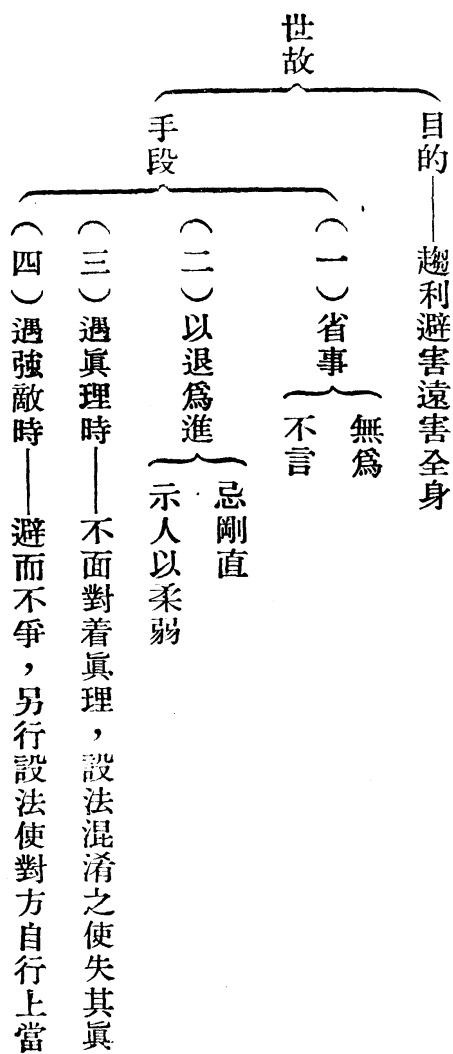 世故
目的——趨利避害遠害全身
手段
（一）省事
無爲
不言
（二）以退爲進
忌剛直
示人以柔弱
（三）遇眞理時——不面對着眞理，設法混淆之使失其眞
（四）遇強敵時——避而不爭，另行設法使對方自行上當